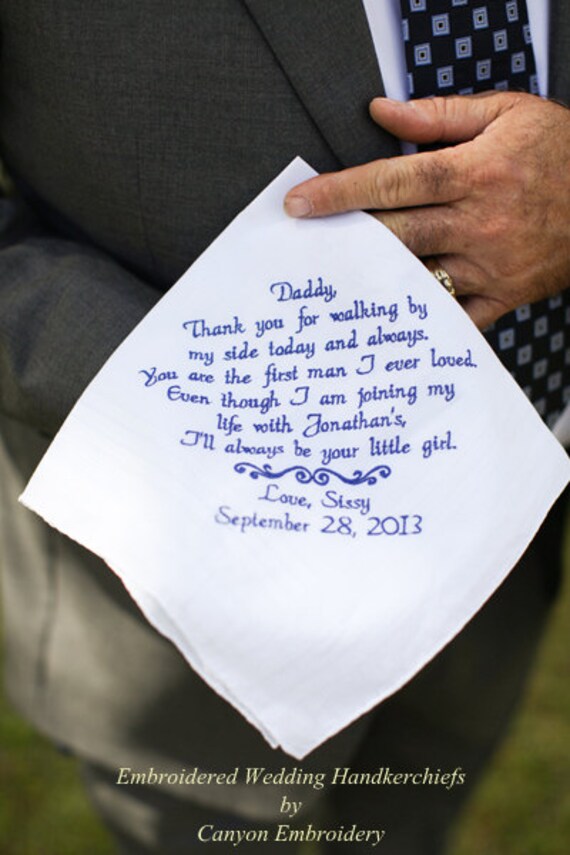 Daddy,
Thank you for walking by
my side today and always.
You are the first man I ever loved.
Even though I am joining my
life with Jonathan's,
I'll always be your little girl.
Love, Sissy
September 28, 2013
Embroidered Wedding Handkerchiefs
by
Canyon Embroidery